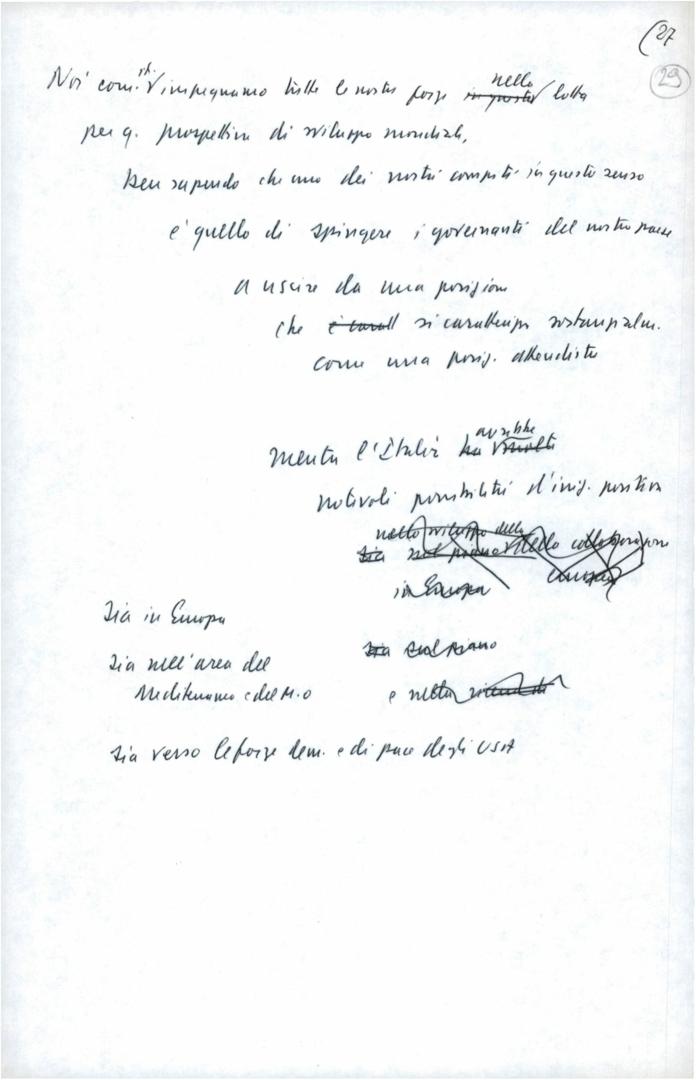 (27
29
Noi com. it. impegnamo tutte le nostre forze in questa nella lotta
per q. prospettiva di sviluppo mondiale,
ben sapendo che uno dei nostri compiti in questo senso
è quello di spingere i governanti del nostro paese
a uscire da una posizione
che è caratt si caratterizza sostanzialm.
come una posiz. attendista
mentre l'Italia ha avrebbe molte
notevoli possibilità d'iniz. positiva
nello sviluppo della
sia sul piano della cooperazione
in Europa europea
sia in Europa
sia sul piano
sia nell'area del
Mediterraneo e del M.O
e nella
sia verso le forze dem. e di pace degli USA